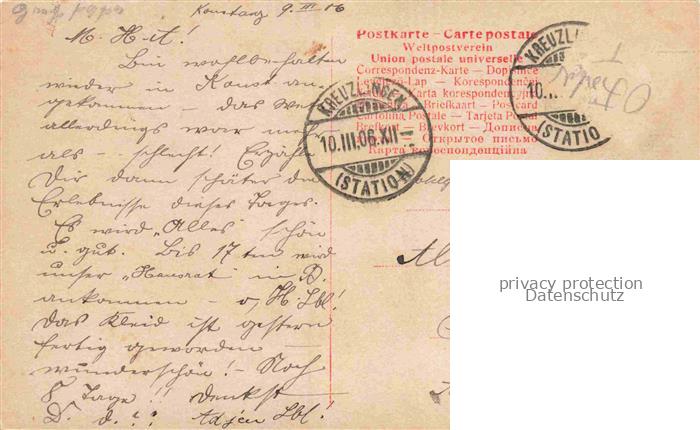 Konstanz 9. III 06
M. H it!
Bin wohlbehalten
wieder in Konst an-
gekommen — das Wet
allerdings war mehr
als schlecht! Erzähle
Dir dann später die
Erlebnisse dieses Tages.
Es wird „Alles" schön
u. gut. Bis 17ten wird
unser „Hausrat" in
ankommen — o, H Lbl!
Das Kleid ist gestern
fertig geworden —
wunderschön! — Noch
8 Tage!! denkst
D. d.?? Adjeu Lbl!
Postkarte – Carte postale
Weltpostverein
Union postale universelle
Correspondenz-Karte – Dopisnice
Levelező-Lap – Korespondenční
karta korespondencyjna
Briefkaart – Postcard
Cartolina Postale – Tarjeta Postal
Brefkort – Brevkort – Дописна
Открытое письмо
Карта кореспонденційна
KREUZLINGEN
10.III.06.XII
(STATION)
KREUZLI
10.I
(STATIO
privacy protection
Datenschutz